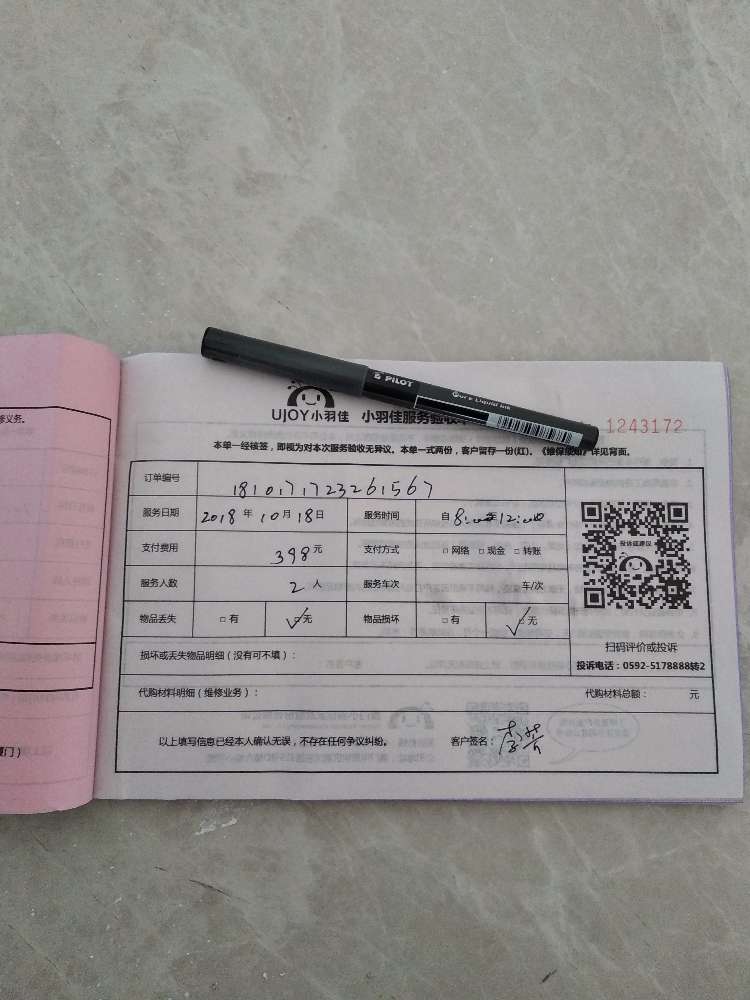 PILOT
Pure Liquid Ink
UJOY小羽佳 小羽佳服务验收单
1243172
本单一经核签，即视为对本次服务验收无异议。本单一式两份，客户留存一份(红)。《维保须知》详见背面。
订单编号 181017172326​1567
服务日期 2018 年 10 月 18 日 服务时间 自 8:00至12:00
投诉或建议
支付费用 398 元 支付方式 □ 网络 □ 现金 □ 转账
服务人数 2 人 服务车次 车/次
物品丢失 □ 有 □ 无 物品损坏 □ 有 □ 无
损坏或丢失物品明细（没有可不填）：
扫码评价或投诉
投诉电话：0592-5178888转2
代购材料明细（维修业务）： 代购材料总额： 元
以上填写信息已经本人确认无误，不存在任何争议纠纷。 客户签名：
修义务。
厦门）